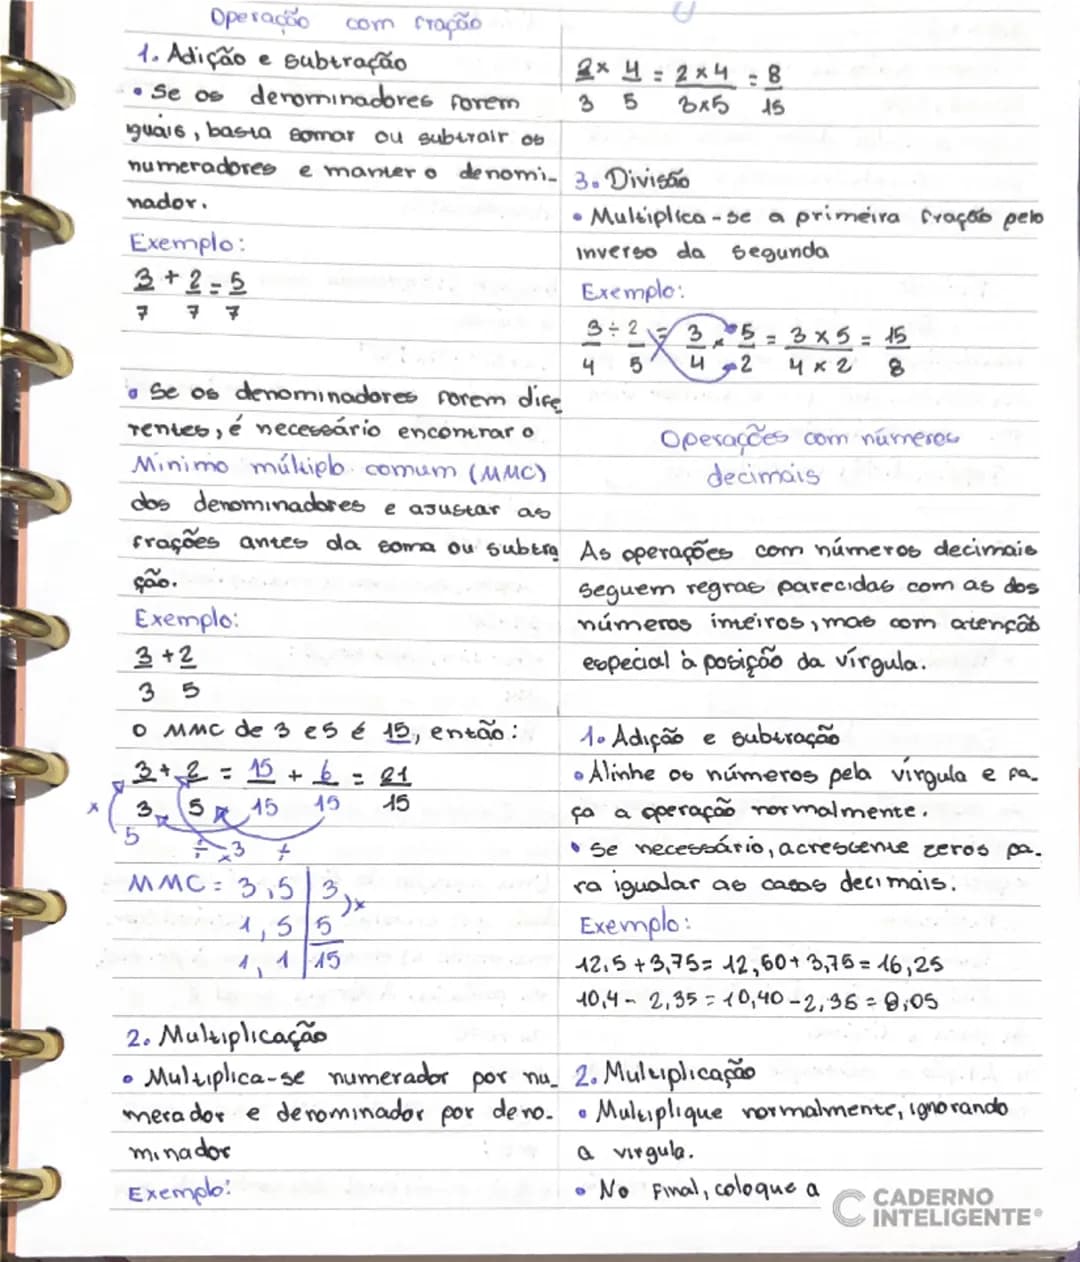 Operação com fração
1. Adição e subtração
• Se os denominadores forem
iguais, basta somar ou subtrair os
numeradores e manter o denomi-
nador.
Exemplo:
3 + 2 = 5
7 7 7
• Se os denominadores forem dife
rentes, é necessário encontrar o
Minimo múltiplo comum (MMC)
dos denominadores e ajustar as
frações antes da soma ou subtra
ção.
Exemplo:
3 + 2
3 5
O MMC de 3 e 5 é 15, então:
3 + 2 = 15 + 6 = 21
x 3 5 15 15 15
5 ÷ x3 ÷
MMC = 3,5 | 3
1, 5 | 5 )x
1, 1 | 15
2. Multiplicação
• Multiplica-se numerador por nu_
merador e denominador por deno-
minador
Exemplo:
2 x 4 = 2 x 4 = 8
3 5 3x5 15
3. Divisão
• Multiplica-se a primeira fração pelo
inverso da segunda
Exemplo:
3 ÷ 2 = 3 x 5 = 3 x 5 = 15
4 5 4 2 4 x 2 8
Operações com números
decimais
As operações com números decimais
seguem regras parecidas com as dos
números inteiros, mas com atenção
especial à posição da vírgula.
1. Adição e subtração
• Alinhe os números pela vírgula e fa_
ça a operação normalmente.
• Se necessário, acrescente zeros pa_
ra igualar as casas decimais.
Exemplo:
12,5 + 3,75 = 12,50 + 3,75 = 16,25
10,4 - 2,35 = 10,40 - 2,35 = 8,05
2. Multiplicação
• Multiplique normalmente, ignorando
a virgula.
• No Final, coloque a
CADERNO
INTELIGENTE®